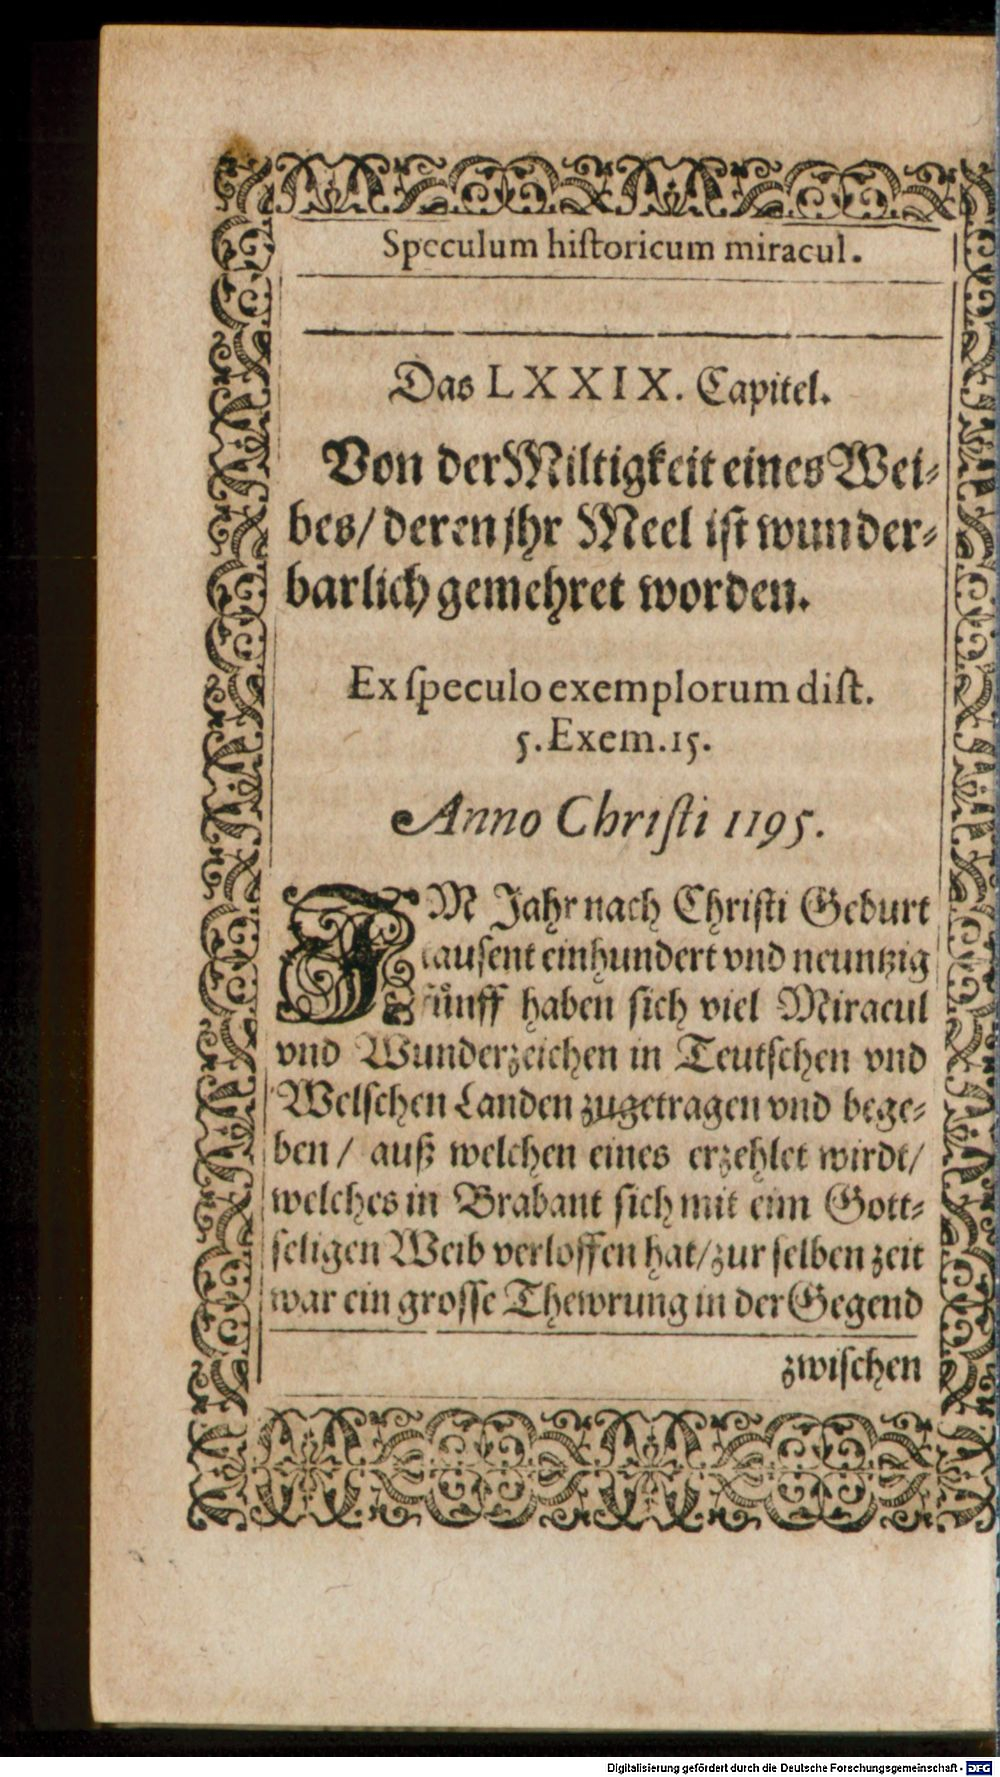 Speculum historicum miracul.
Das LXXIX. Capitel.
Von der Miltigkeit eines Wei⸗
bes/ deren jhr Meel ist wunder⸗
barlich gemehret worden.
Ex speculo exemplorum dist.
5. Exem. 15.
Anno Christi 1195.
IM Jahr nach Christi Geburt
tausent einhundert vnd neuntzig
fünff haben sich viel Miracul
vnd Wunderzeichen in Teutschen vnd
Welschen Landen zugetragen vnd bege⸗
ben / auß welchen eines erzehlet wirdt/
welches in Brabant sich mit eim Gott⸗
seligen Weib verloffen hat/ zur selben zeit
war ein grosse Thewrung in der Gegend
zwischen
Digitalisierung gefördert durch die Deutsche Forschungsgemeinschaft - DFG